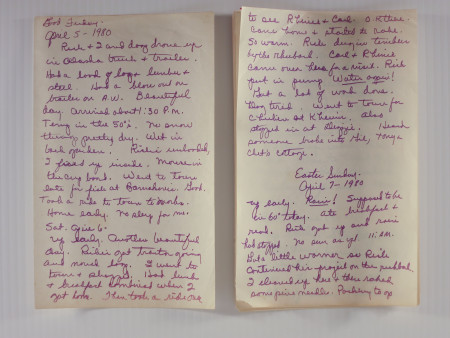 Good Friday.
April 5 - 1980
Rich & I and dog drove up
in truck & trailer.
Had a load of logs & lumber &
steel. Had a blow out on
trailer on A.W. Beautiful
day. Arrived about 1:30 P.M.
Temp in the 50's. No snow
things pretty dry. Wet in
back garden. Richie unloaded,
I fixed up inside. Mouse in
the bed. Went to town
late for fish at Good.
Took a ride to town to
Home early. No sleep for me.
Sat. April 6-
up early. Another beautiful
day. Richie got going
and moved logs. I went to
town & shopped. Had lunch
& breakfast combined when I
got home. Then took a ride
to see & Carl.
came home & started to rake.
So warm. Rich digging
by the rhubarb. Carl &
came over here for a visit. Rich
put in pump. Water again!
Got a lot of work done.
Dog tired. Went to town for
Also
stopped in at Heard
someone broke into
cottage.
Easter Sunday.
April 7 - 1980
up early. Rain! Supposed to be
in 60's today. Ate breakfast &
read. Rich got up and rain
had stopped. No sun as yet. 11: A.M.
But a little warmer so Rich
continued his project on the
I cleaned up here & then raked
some pine needles. Packing to go